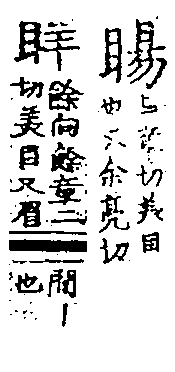 䁑
与章切美目
也又余亮切
眻
餘向餘章二
切美目又眉
間
也